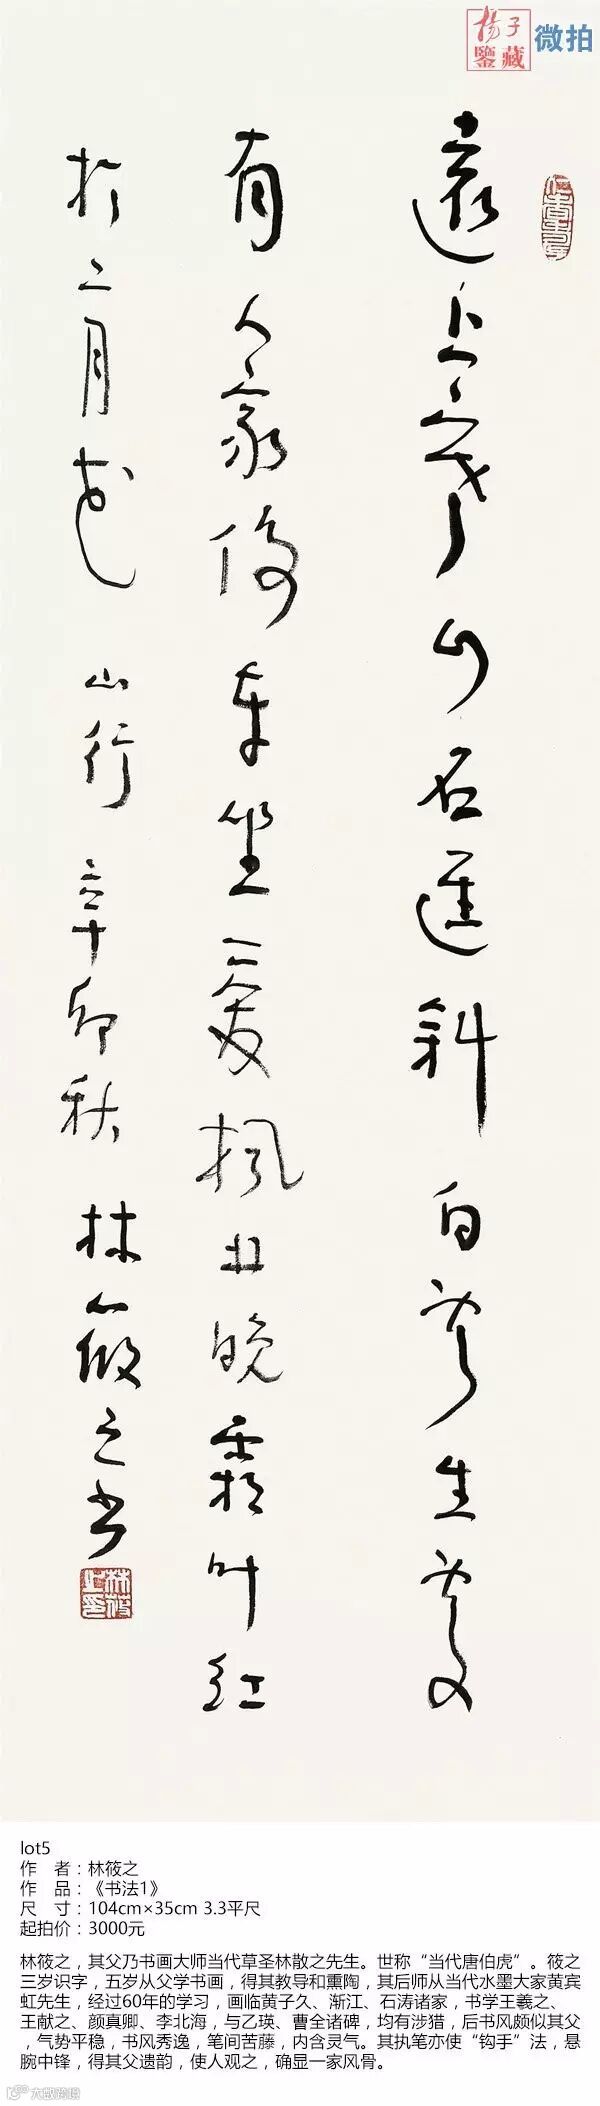 揚子
鑒藏
微拍
遠上寒山石徑斜白雲生處
有人家停车坐爱枫林晚霜叶红
於二月花 山行 辛卯秋 林筱之书
林筱之印
lot5
作 者：林筱之
作 品：《书法1》
尺 寸：104cm×35cm 3.3平尺
起拍价：3000元
林筱之，其父乃书画大师当代草圣林散之先生。世称“当代唐伯虎”。筱之
三岁识字，五岁从父学书画，得其教导和熏陶，其后师从当代水墨大家黄宾
虹先生，经过60年的学习，画临黄子久、渐江、石涛诸家，书学王羲之、
王献之、颜真卿、李北海，与乙瑛、曹全诸碑，均有涉猎，后书风颇似其父
，气势平稳，书风秀逸，笔间苦藤，内含灵气。其执笔亦使“钩手”法，悬
腕中锋，得其父遗韵，使人观之，确显一家风骨。
大数跨境